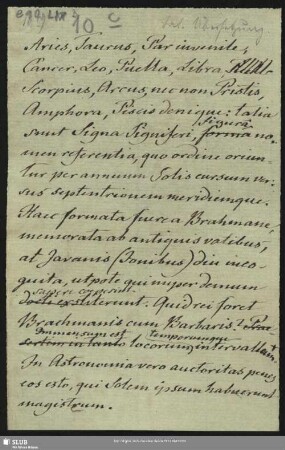 10 c
Lat. Übersetzung
Aries, Taurus, Par iuvenile,
Cancer, Leo, Puella, Libra
Scorpius, Arcus, nec non Pristis,
Amphora, Piscis denique: talia
figurâ
sunt Signa Signiferi, forma no-
men referentia, quo ordine oriun-
tur per annum Solis cursum ver-
sus septentrionem meridiemque.
Haec formata fuere a Brahmane,
memorata ab antiquis vatibus,
at Javanis (Ionibus) diu inco-
gnita, utpote qui nuper demum
extiterunt. Quid rei foret
Brachmanis cum Barbaris?
immensumque est temporumque
in tanto locorum intervallum.
In Astronomia vero auctoritas penes
eos esto, qui Solem ipsum habuerunt
magistrum.
SLUB